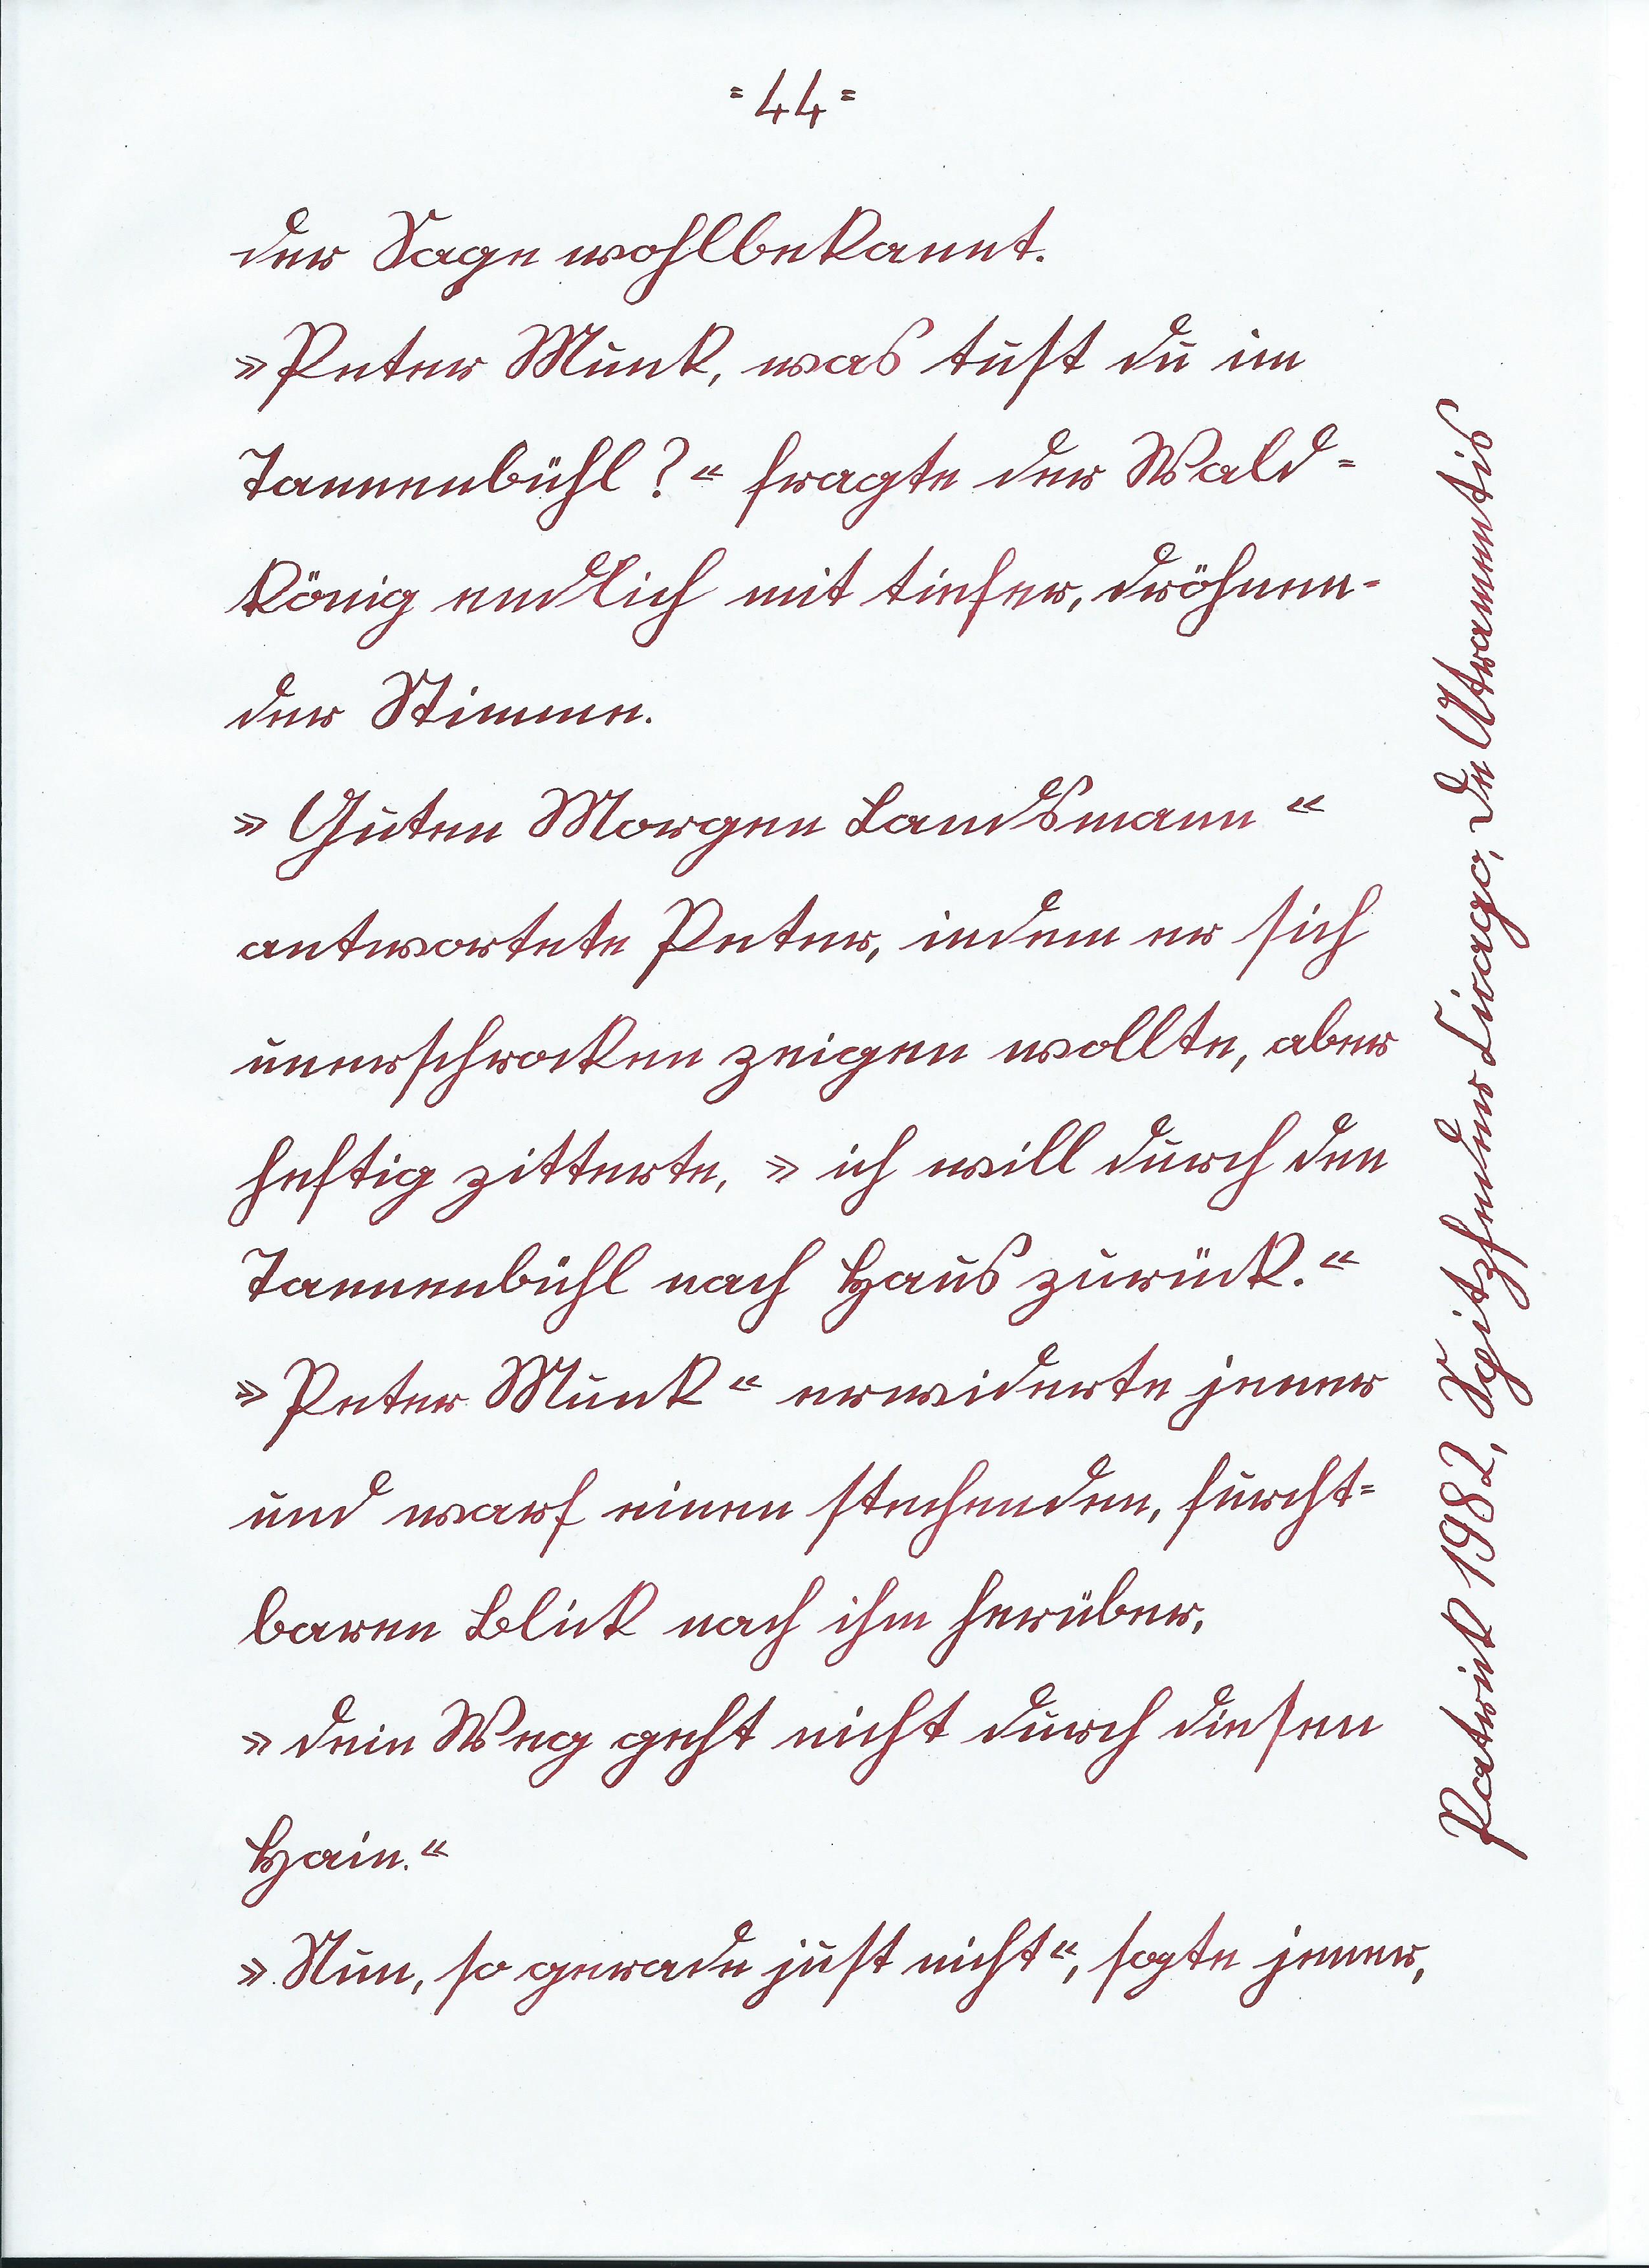 =44=
der Sage wohlbekannt.
»Peter Munk, was tust du im
Tannenbühl?« fragte der Wald=
könig endlich mit tiefer, dröhnen=
der Stimme.
»Guten Morgen Landsmann«
antwortete Peter, indem er sich
unerschrocken zeigen wollte, aber
heftig zitterte, »ich will durch den
Tannenbühl nach Haus zurück.«
»Peter Munk« erwiderte jener
und warf einen stechenden, furcht=
baren Blick nach ihm herüber,
»dein Weg geht nicht durch diesen
Hain.«
»Nun, so gerade just nicht«, sagte jener,
1982, Spitzfeder